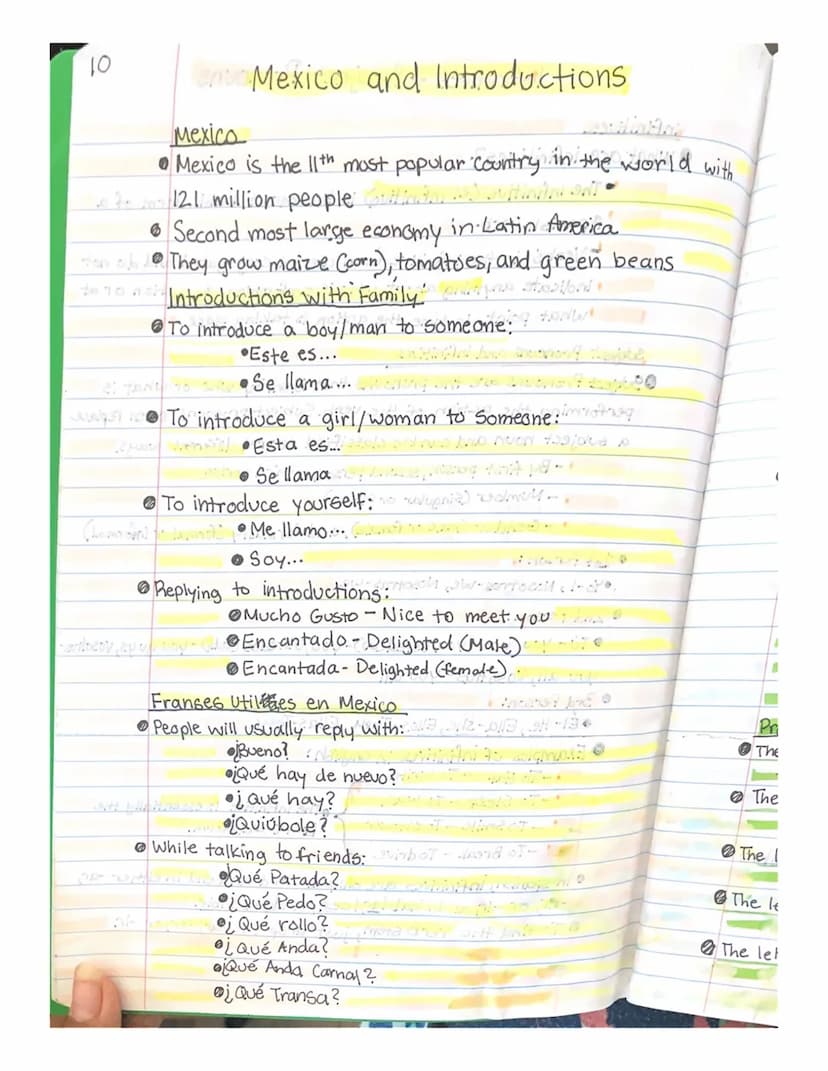 10
Mexico and Introductions
Mexico
Mexico is the 11th most popular country in the world with
121 million people
Second most large economy in Latin America
They grow maize (corn), tomatoes, and green beans
Introductions with Family:
To introduce a boy/man to someone:
Este es...
Se llama...
To introduce a girl/woman to someone:
Esta es...
Se llama
To introduce yourself:
Me llamo...
Soy...
Replying to introductions:
Mucho Gusto - Nice to meet you
Encantado - Delighted (Male)
Encantada - Delighted (female)
Franses en Mexico
People will usually reply with:
¿Bueno?
¿Qué hay de nuevo?
¿Qué hay?
¿Quiúbole?
While talking to friends:
¿Qué Patada?
¿Qué Pedo?
¿Qué rollo?
¿Qué Anda?
¿Qué Anda Carnal?
¿Qué Transa?
Pr
The
The
The
The le
The let